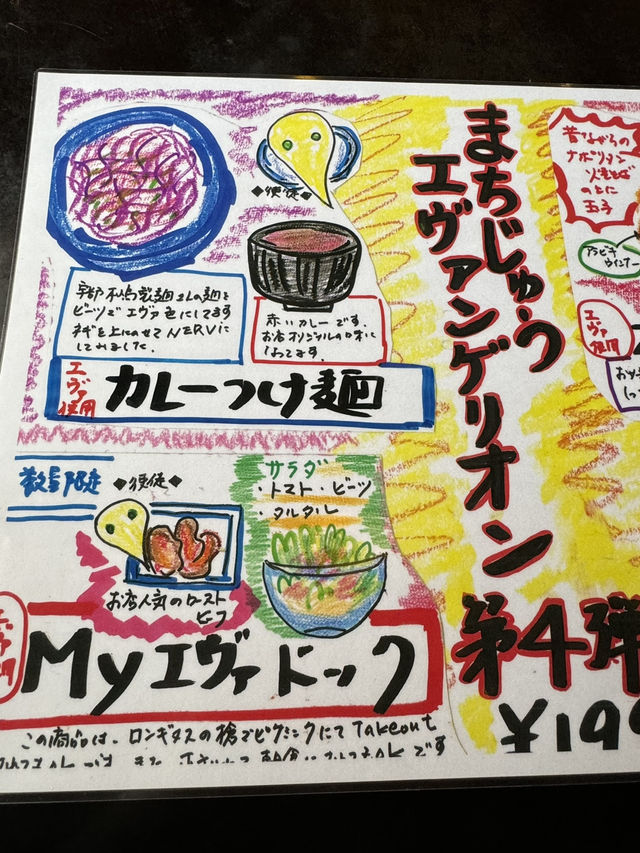 まちじゅう
エヴァンゲリオン
第4弾
¥199
◆使徒◆
宇部 小鳥製麺さんの麺を
ビーツでエヴァ色にしてます
ネギを上にのせてNERVに
してみました。
赤いカレーです。
お店オリジナルの味に
なってます。
エヴァ
使用
カレーつけ麺
昔ながらの
ナポリタン
火焼き
のとに
玉子
アラビキ
ウインナー
エヴァ
使用
数量限定
◆使徒◆
サラダ
・トマト・ビーツ
・タルタル
お店人気のロースト
ビーフ
Myエヴァドック
この商品は、ロンギヌスの槍でピクニックにてTakeout